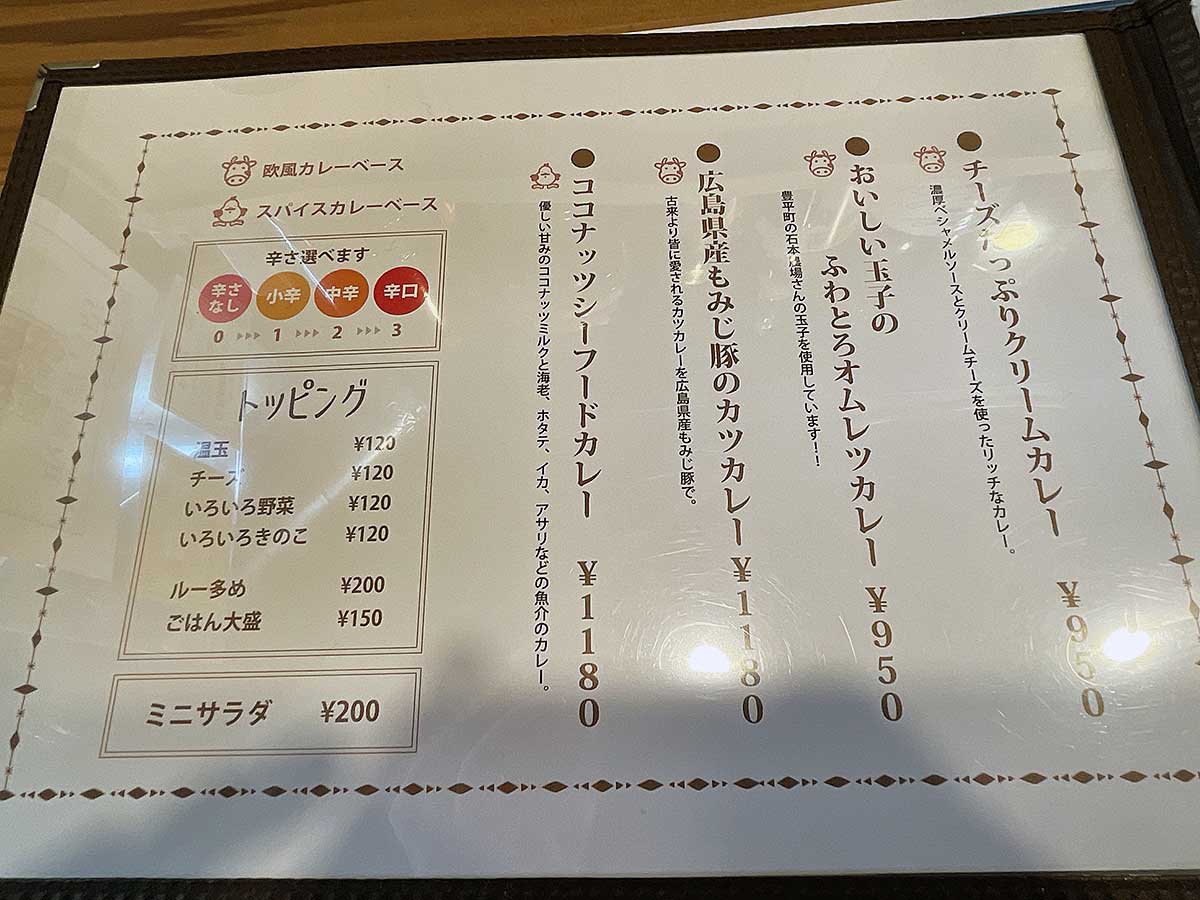 チーズたっぷりクリームカレー ¥950
濃厚ベシャメルソースとクリームチーズを使ったリッチなカレー。
おいしい玉子の
ふわとろオムレツカレー ¥950
豊平町の石本農場さんの玉子を使用しています！！
広島県産もみじ豚のカツカレー ¥1180
古来より皆に愛されるカツカレーを広島県産もみじ豚で。
ココナッツシーフードカレー ¥1180
優しい甘みのココナッツミルクと海老、ホタテ、イカ、アサリなどの魚介のカレー。
欧風カレーベース
スパイスカレーベース
辛さ選べます
辛さなし 小辛 中辛 辛口
0 1 2 3
トッピング
温玉 ¥120
チーズ ¥120
いろいろ野菜 ¥120
いろいろきのこ ¥120
ルー多め ¥200
ごはん大盛 ¥150
ミニサラダ ¥200